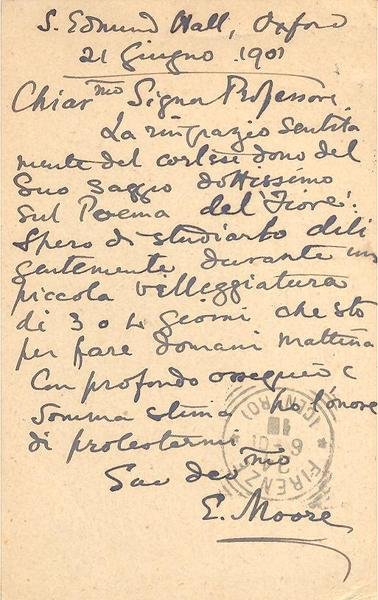 S. Edmund Hall, Oxford
21 Giugno 1901
Chiar.mo Signor Professore
La ringrazio sentita
mente del cortese dono del
Suo saggio dottissimo
sul Poema del 'Fiore'.
Spero di studiarlo dili
gentemente durante una
piccola velleggiatura
di 3 o 4 giorni che sto
per fare domani mattina
Con profondo ossequio e
somma stima ho l'onore
di protestarmi
Suo dev.mo
E. Moore
FIRENZE (CENTRO)